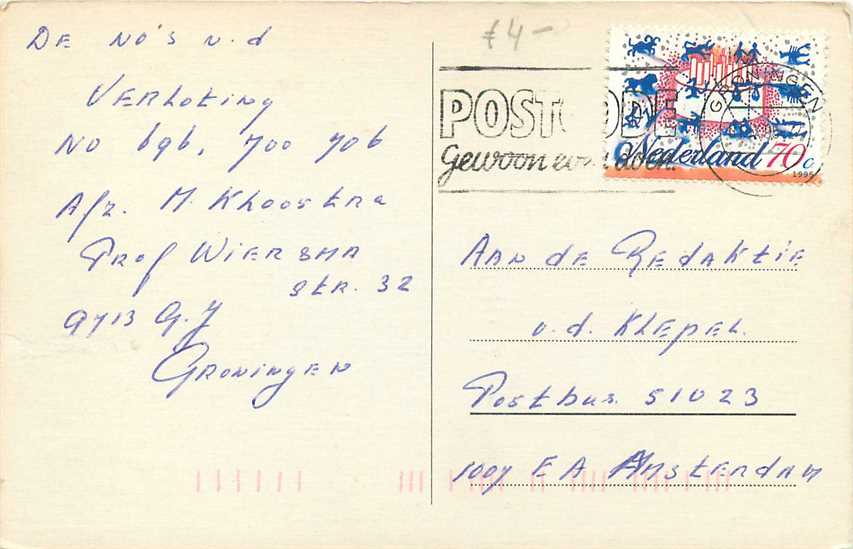 DE NO'S v.d
VERLOTING
NO 696, 700 706
Afz. M. Kloostra
Prof WIERSMA
STR. 32
9713 G.J
GRONINGEN
£4-
POSTCODE
Gewoon even doen.
GRONINGEN
Nederland 70 c
1995
AAN de REDAKTIE
v.d. KLEPEL.
Postbus 51023
1007 EA AMSTERDAM